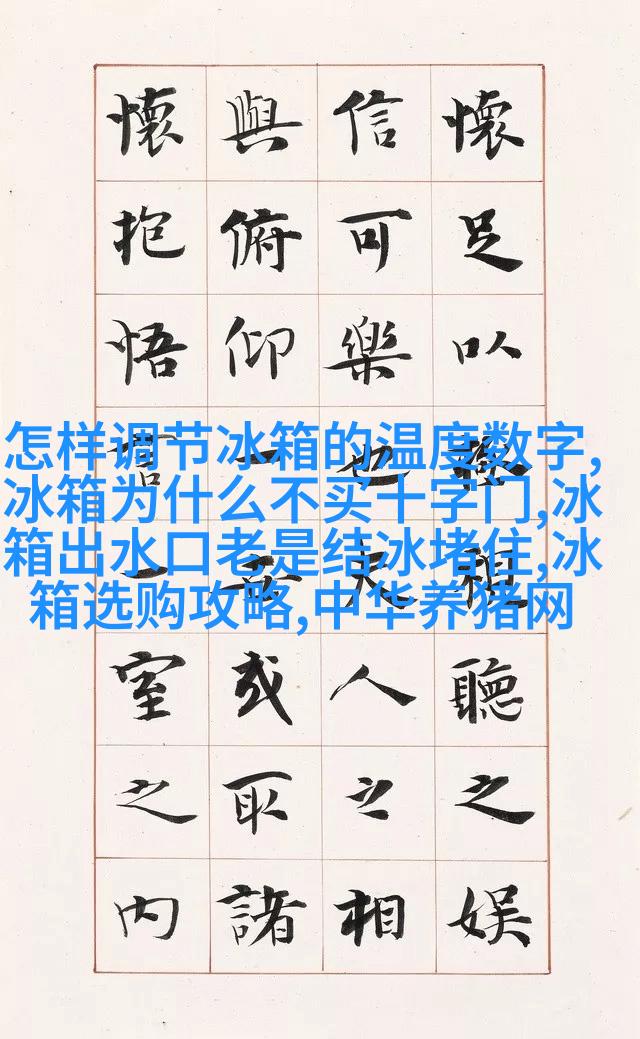 懷足以極視聽之娛
信可樂也夫人之相
與俯仰一世或取諸
懷抱悟言一室之内
怎样调节冰箱的温度数字,
冰箱为什么不买十字门,冰
箱出水口老是结冰堵住,冰
箱选购攻略,中华养猪网